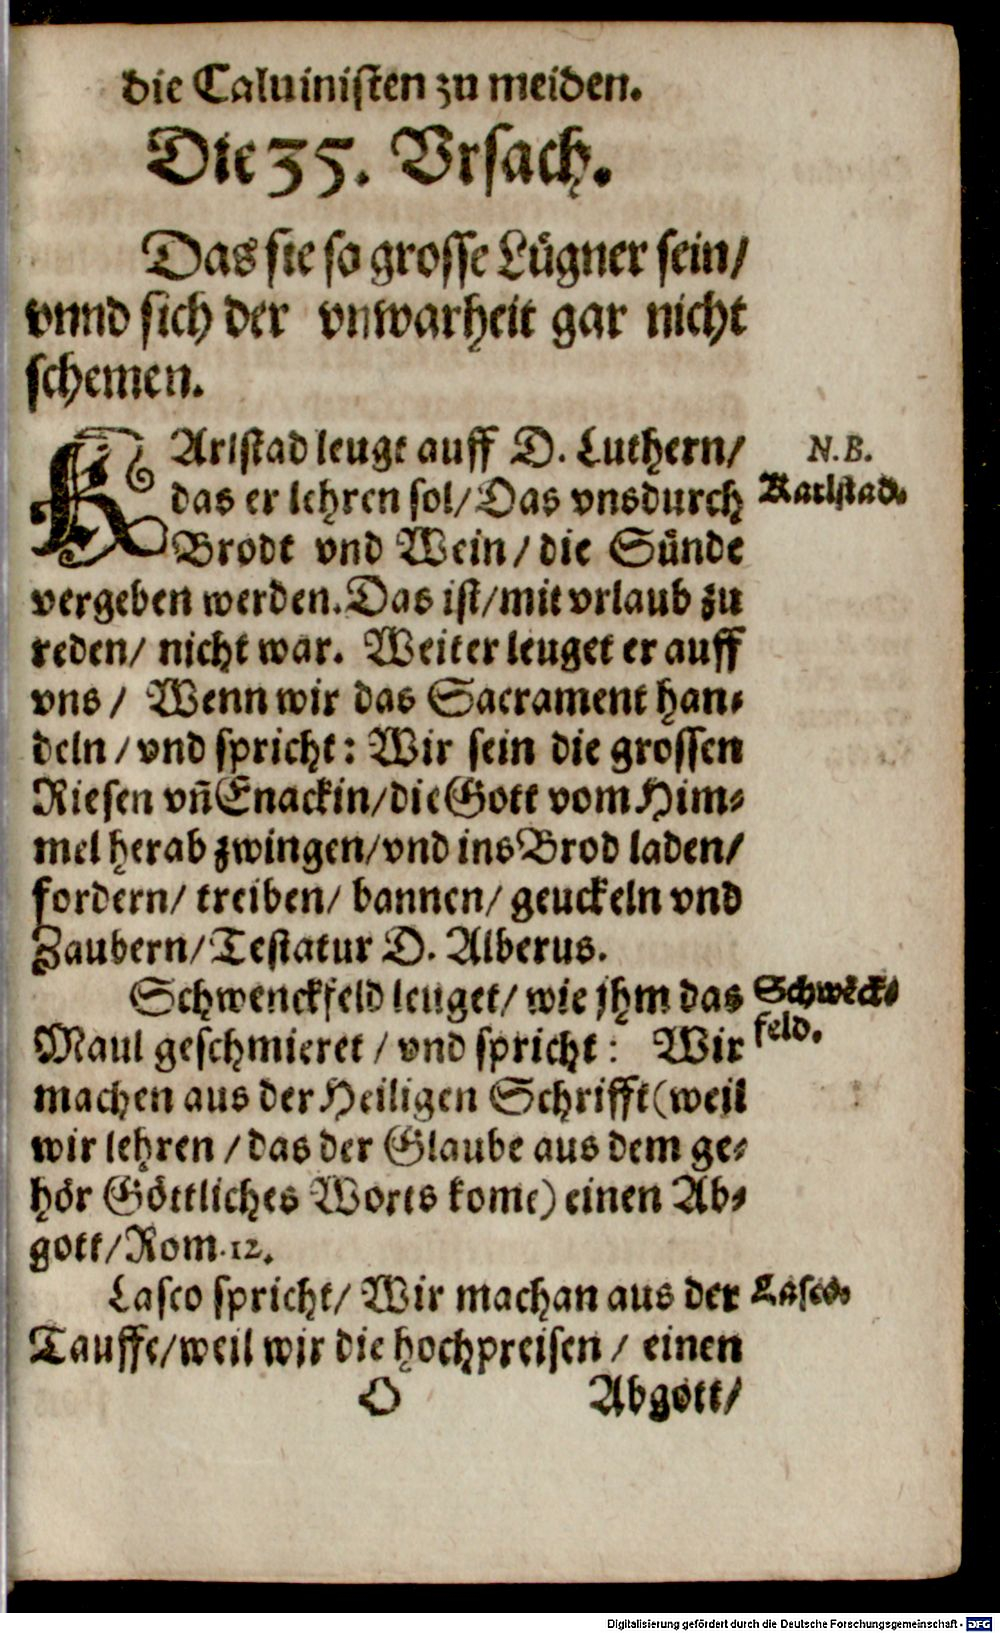 die Caluinisten zu meiden.
Die 35. Vrsach.
Das sie so grosse Lügner sein/
vnnd sich der vnwarheit gar nicht
schemen.
KArlstad leugt auff D. Luthern/
N.B.
das er lehren sol/ Das vns durch
Karlstad.
Brodt vnd Wein/ die Sünde
vergeben werden. Das ist/ mit vrlaub zu
reden/ nicht war. Weiter leuget er auff
vns/ Wenn wir das Sacrament han-
deln/ vnd spricht: Wir sein die grossen
Riesen vñ Enackin/ die Gott vom Him-
mel herab zwingen/ vnd ins Brod laden/
fordern/ treiben/ bannen/ geuckeln vnd
Zaubern/ Testatur D. Alberus.
Schwenckfeld leuget/ wie jhm das
Schwẽck-
Maul geschmieret/ vnd spricht: Wir
feld.
machen aus der Heiligen Schrifft (weil
wir lehren/ das der Glaube aus dem ge-
hör Göttliches Worts kome) einen Ab-
gott/ Rom. 12.
Lasco spricht/ Wir machan aus der
Lasco.
Tauffe/ weil wir die hochpreisen/ einen
O Abgott/
Digitalisierung gefördert durch die Deutsche Forschungsgemeinschaft - DFG